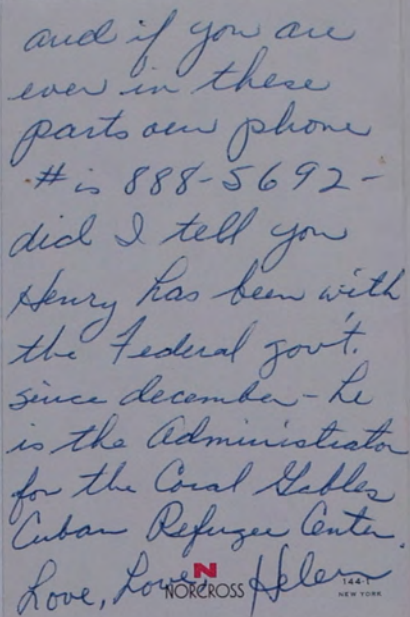 and if you are
ever in these
parts our phone
# is 888-5692-
did I tell you
Henry has been with
the Federal gov't.
since december - he
is the Administrator
for the Coral Gables
Cuban Refugee Center.
Love, Love, Helen
N
NORCROSS
144-1
NEW YORK